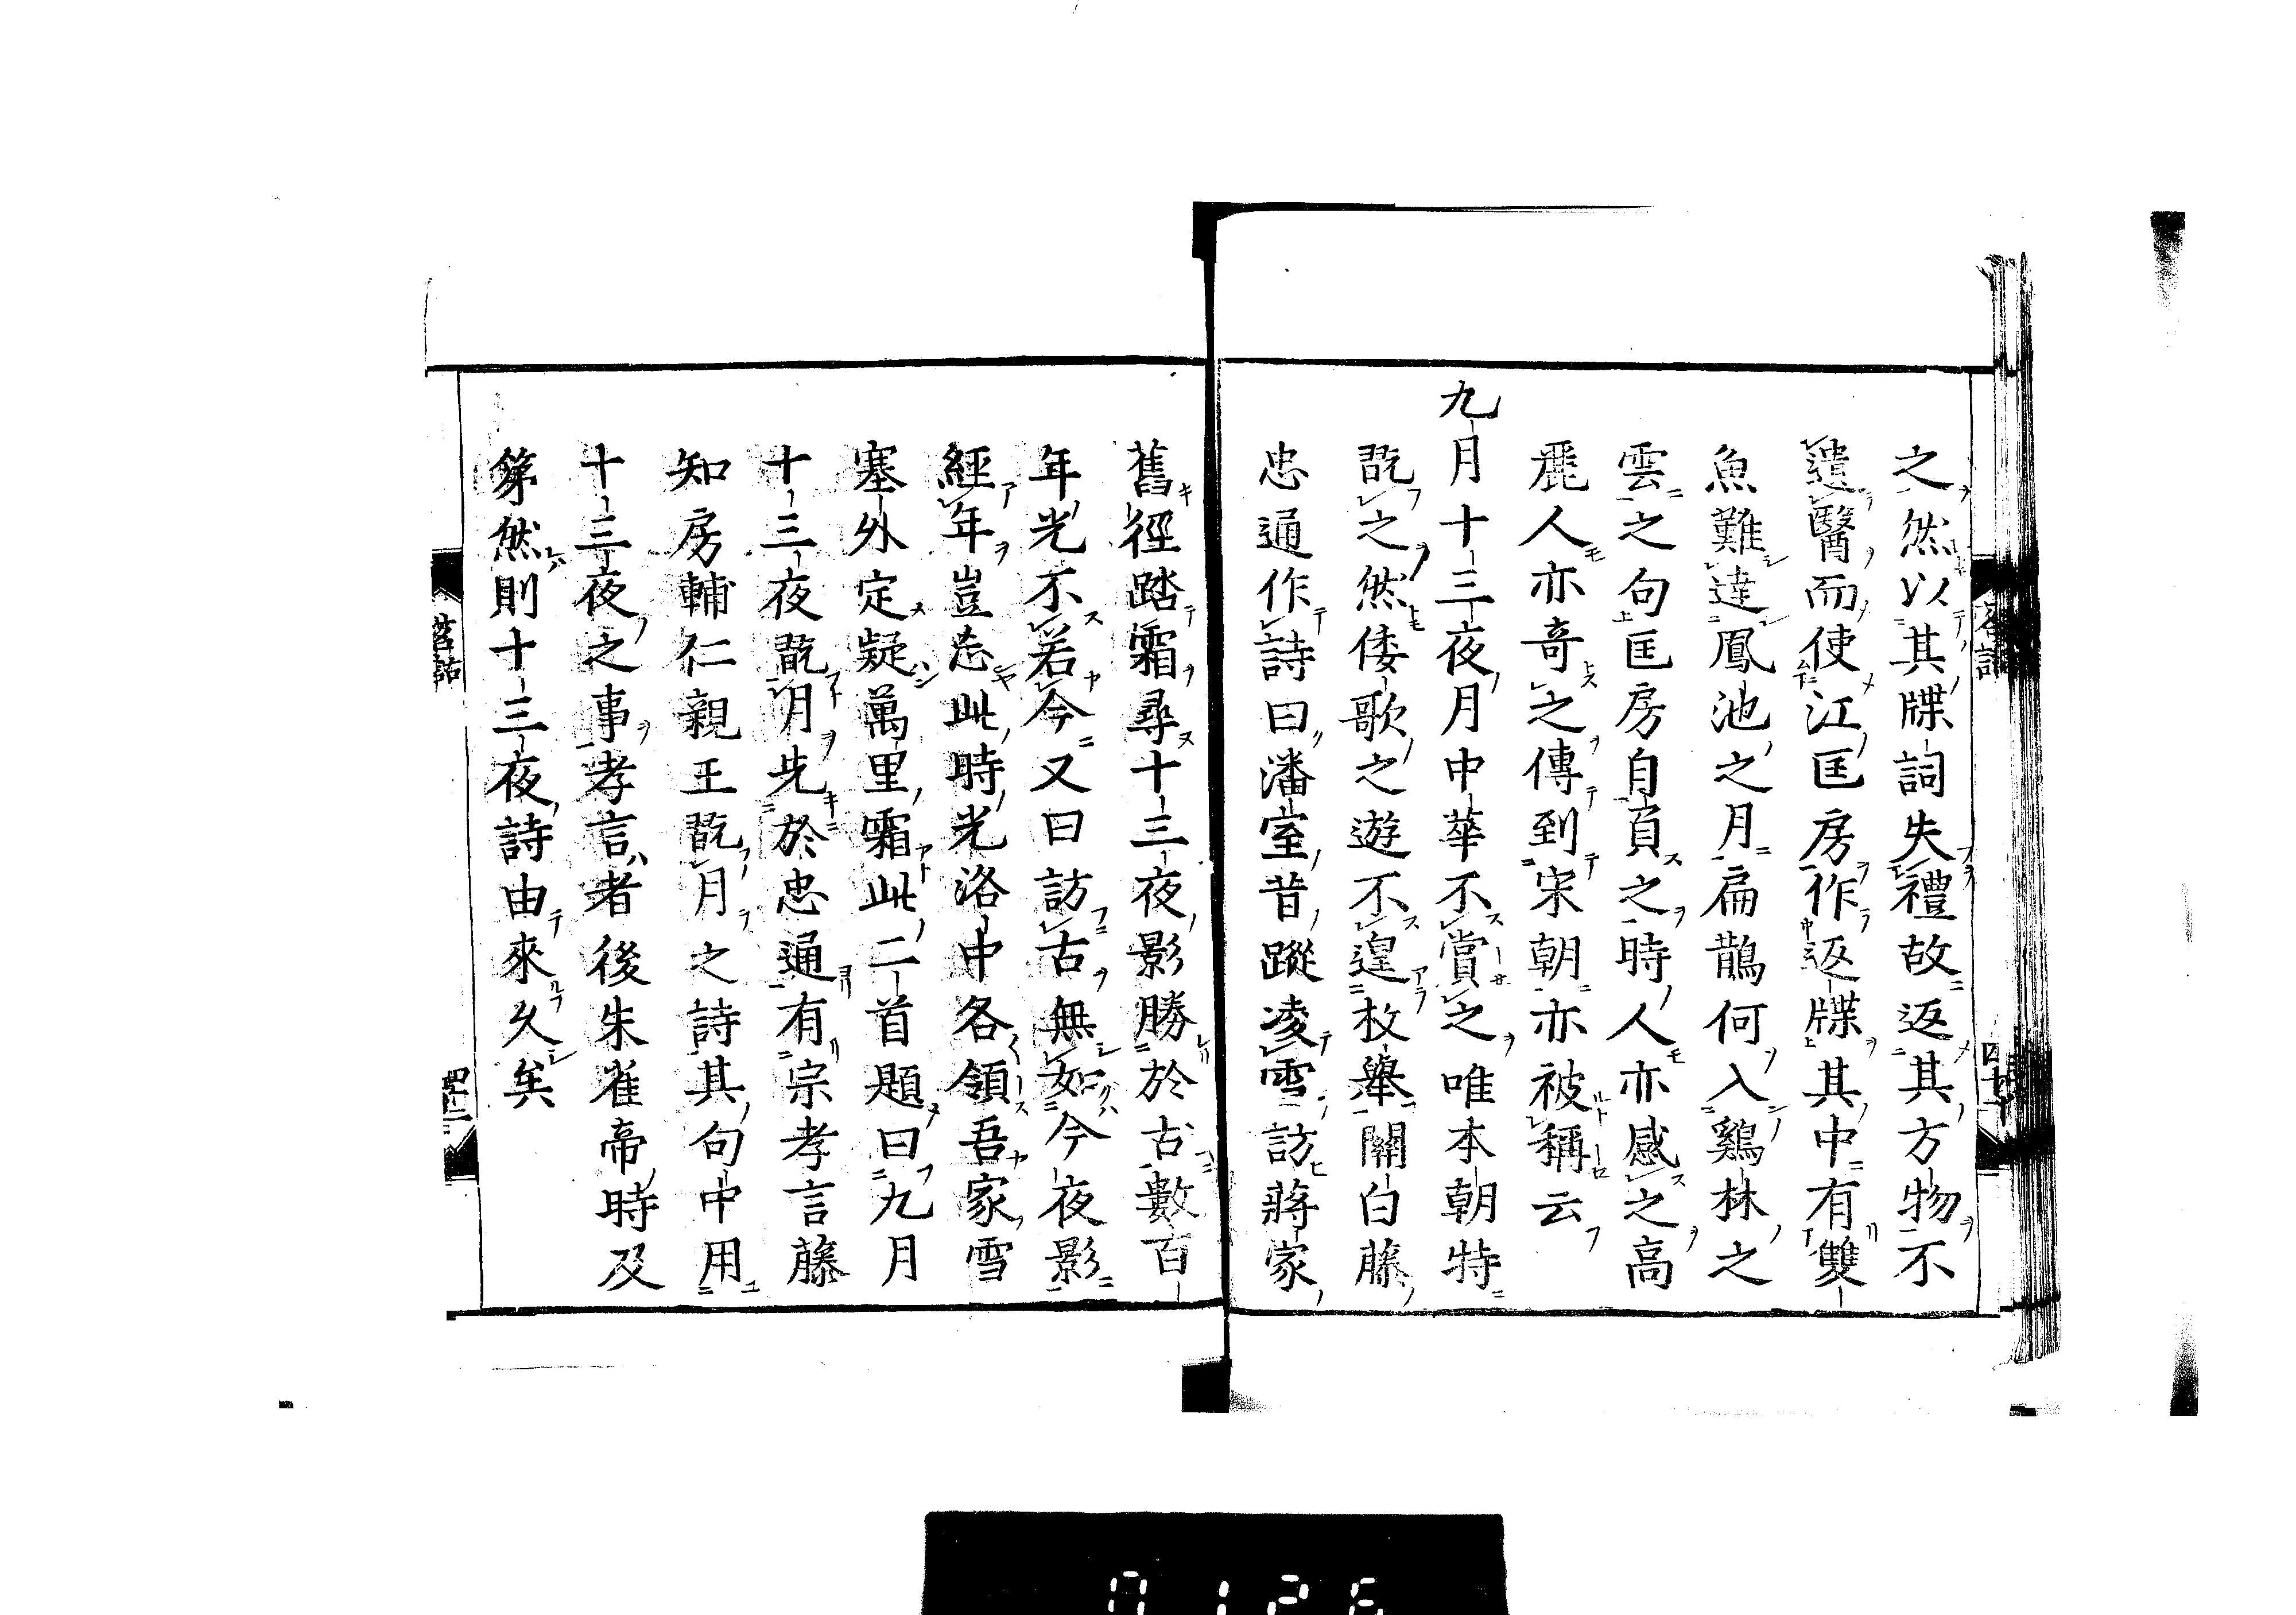 之然以其牒詞失禮故返其方物不
遣醫而使江匡房作返牒其中有雙
魚難達鳳池之月扁鵲何入鷄林之
雲之句匡房自負之時人亦感之高
麗人亦奇之傳到宋朝亦被稱云
九月十三夜月中華不賞之唯本朝特
翫之然倭歌之遊不遑枚擧關白藤
忠通作詩曰潘室昔蹤凌雪訪蔣家
舊徑踏霜尋十三夜影勝於古數百
年光不若今又曰訪古無如今夜影
經年豈忘此時光洛中各領吾家雪
塞外定疑萬里霜此二首題曰九月
十三夜翫月先於忠通有宗孝言藤
知房輔仁親王翫月之詩其句中用
十三夜之事孝言者後朱雀帝時及
第然則十三夜詩由來久矣